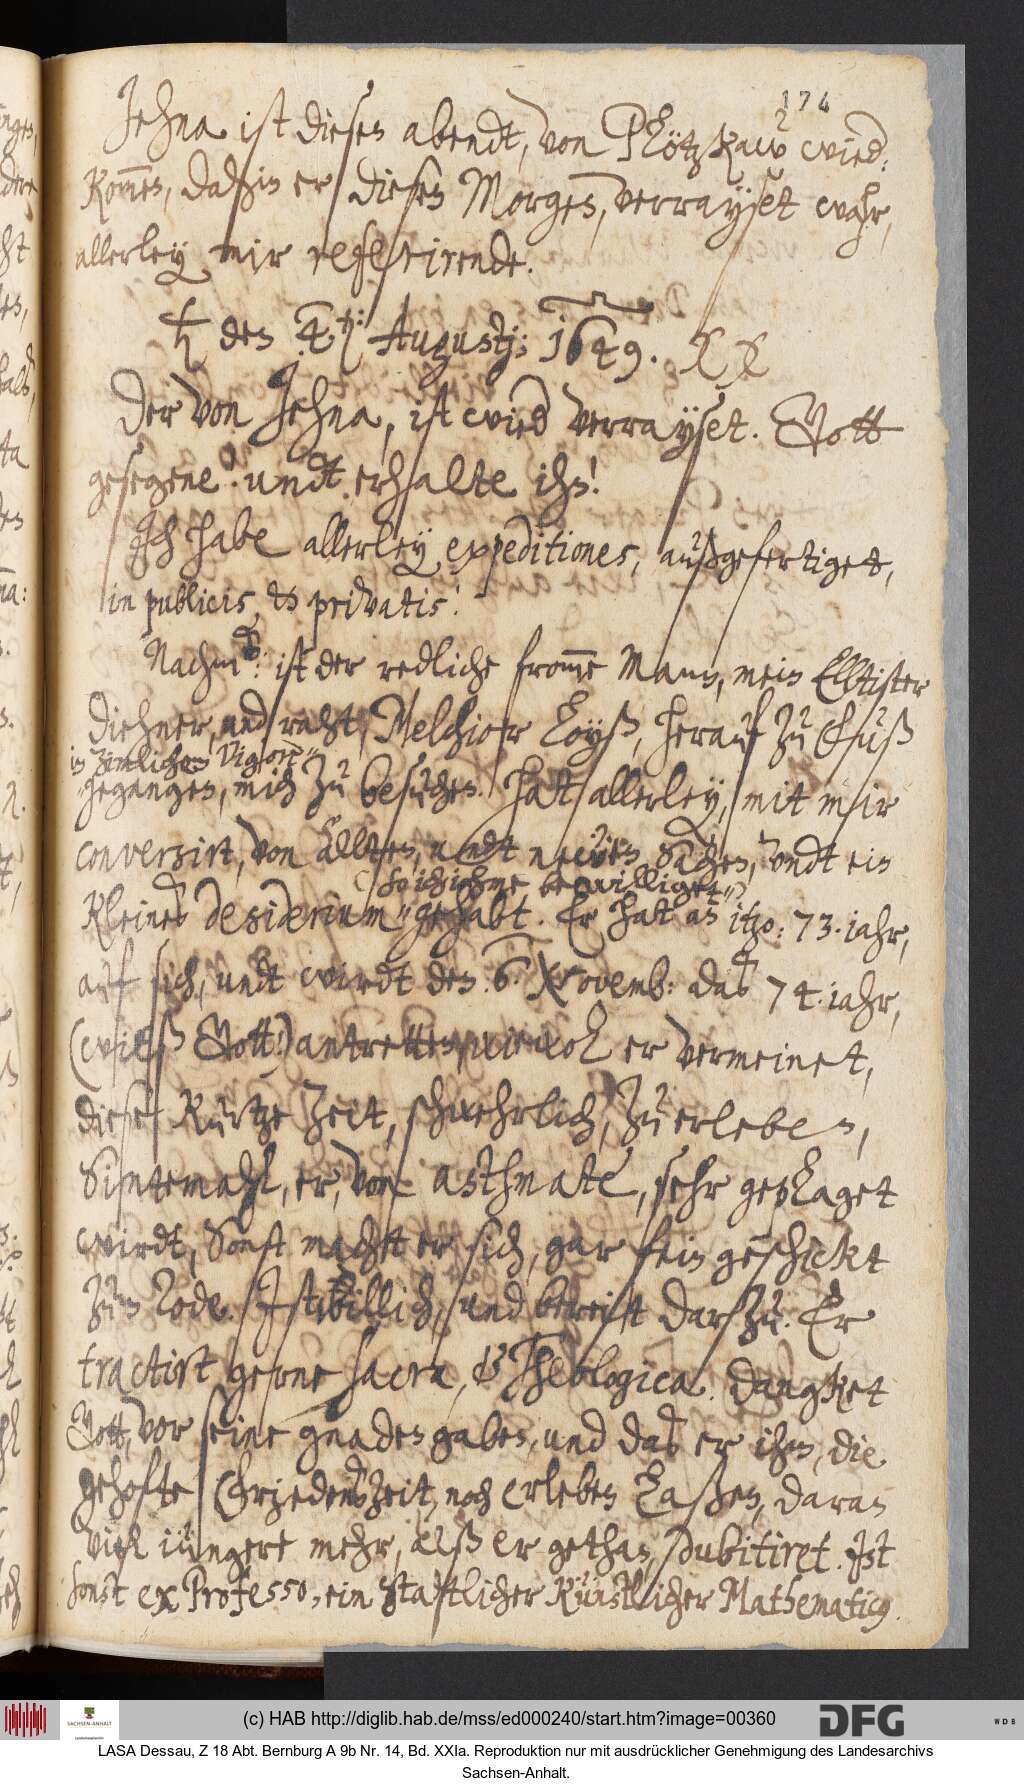 174
Jehna ist diesen abendt, von Plötzkaw wied:
kom̄en, dahin er diesen Morgen, verrayset wahr,
allerley mir referirende.
♄ den 4.ten: Augustj; 1649.
Der von Jehna, ist wied verrayset. Gott
gesegene! undt erhalte ihn!
Jch habe allerley expeditiones, außgefertiget,
in publicis, & privatis!
Nachm: ist der redliche from̄e Mann, mein Elltister
diehner, und raht, Melchior Loyß, herauf zu Fuß
in zimlichem Vigore
gegangen, mich zu besuchen. Hat allerley, mit mir
conversirt, von allten, undt newen Sachen, undt ein
so ich ihme bewilliget
kleines desiderium gehabt. Er hat an itzo: 73. iahr,
auf sich, undt wirdt den 6. Novemb: das 74. iahr,
(wils Gott!) antretten, wiewol er vermeinet,
diese kurtze zeit, schwehrlich, zu erleben,
Sintemahl, er, von asthmate, sehr geplaget
wirdt, Sonst macht er sich, gar fein geschickt
zum Tode. Jst willich, und bereitt darzu. Er
tractirt gerne sacra, & Theologica. Dancket
Gott, vor seine gnaden gaben, und das er ihn, die
gehofte Friedens zeit, noch erleben laßen, daran
viel iüngere mehr, alß er gethan, dubitiret. Jst
sonst ex Professo, ein stattlicher künstlicher Mathematicus
(c) HAB http://diglib.hab.de/mss/ed000240/start.htm?image=00360
SACHSEN-ANHALT
DFG
WDB
LASA Dessau, Z 18 Abt. Bernburg A 9b Nr. 14, Bd. XXIa. Reproduktion nur mit ausdrücklicher Genehmigung des Landesarchivs
Sachsen-Anhalt.